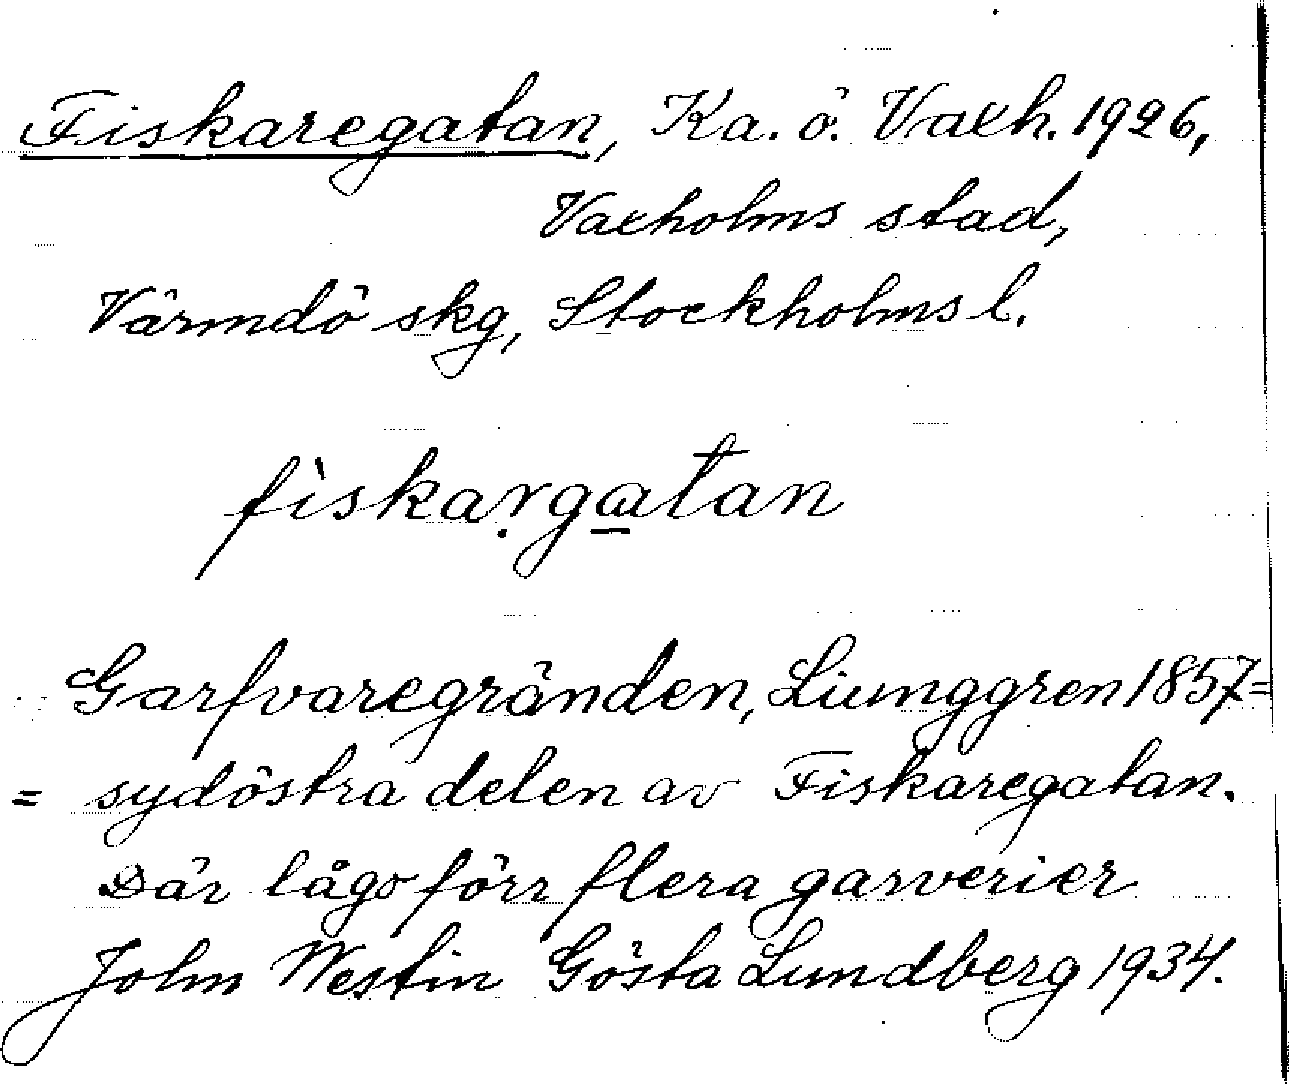 Fiskaregatan, Ka. ö. Vaxh. 1926,
Vaxholms stad,
Värmdö skg, Stockholms l.
fiskaṛga̲tan
Garfvaregränden, Liunggren 1857=
= sydöstra delen av Fiskaregatan.
Där lågo förr flera garverier
John Westin Gösta Lundberg 1934.